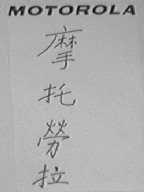 MOTOROLA
摩托勞拉